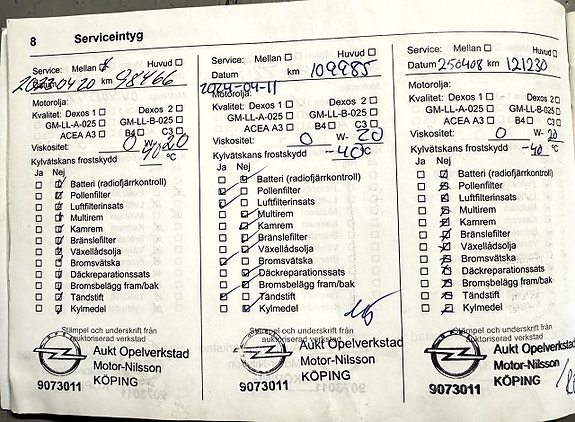 8 Serviceintyg
Service: Mellan Huvud
Datum 2023-04-20 km 98466
Motorolja:
Kvalitet: Dexos 1 Dexos 2
GM-LL-A-025 GM-LL-B-025
ACEA A3 B4 C3
Viskositet: 0 W- 20
Kylvätskans frostskydd -40 °C
Ja Nej
Batteri (radiofjärrkontroll)
Pollenfilter
Luftfilterinsats
Multirem
Kamrem
Bränslefilter
Växellådsolja
Bromsvätska
Däckreparationssats
Bromsbelägg fram/bak
Tändstift
Kylmedel
Stämpel och underskrift från
auktoriserad verkstad
Aukt Opelverkstad
Motor-Nilsson
KÖPING
9073011
Service: Mellan Huvud
Datum km 109985
2024-04-11
Motorolja:
Kvalitet: Dexos 1 Dexos 2
GM-LL-A-025 GM-LL-B-025
ACEA A3 B4 C3
Viskositet: 0 W- 20
Kylvätskans frostskydd -40 °C
Ja Nej
Batteri (radiofjärrkontroll)
Pollenfilter
Luftfilterinsats
Multirem
Kamrem
Bränslefilter
Växellådsolja
Bromsvätska
Däckreparationssats
Bromsbelägg fram/bak
Tändstift
Kylmedel
Stämpel och underskrift från
auktoriserad verkstad
Aukt Opelverkstad
Motor-Nilsson
KÖPING
9073011
Service: Mellan Huvud
Datum 250408 km 121230
Motorolja:
Kvalitet: Dexos 1 Dexos 2
GM-LL-A-025 GM-LL-B-025
ACEA A3 B4 C3
Viskositet: 0 W- 20
Kylvätskans frostskydd -40 °C
Ja Nej
Batteri (radiofjärrkontroll)
Pollenfilter
Luftfilterinsats
Multirem
Kamrem
Bränslefilter
Växellådsolja
Bromsvätska
Däckreparationssats
Bromsbelägg fram/bak
Tändstift
Kylmedel
Stämpel och underskrift från
auktoriserad verkstad
Aukt Opelverkstad
Motor-Nilsson
KÖPING
9073011